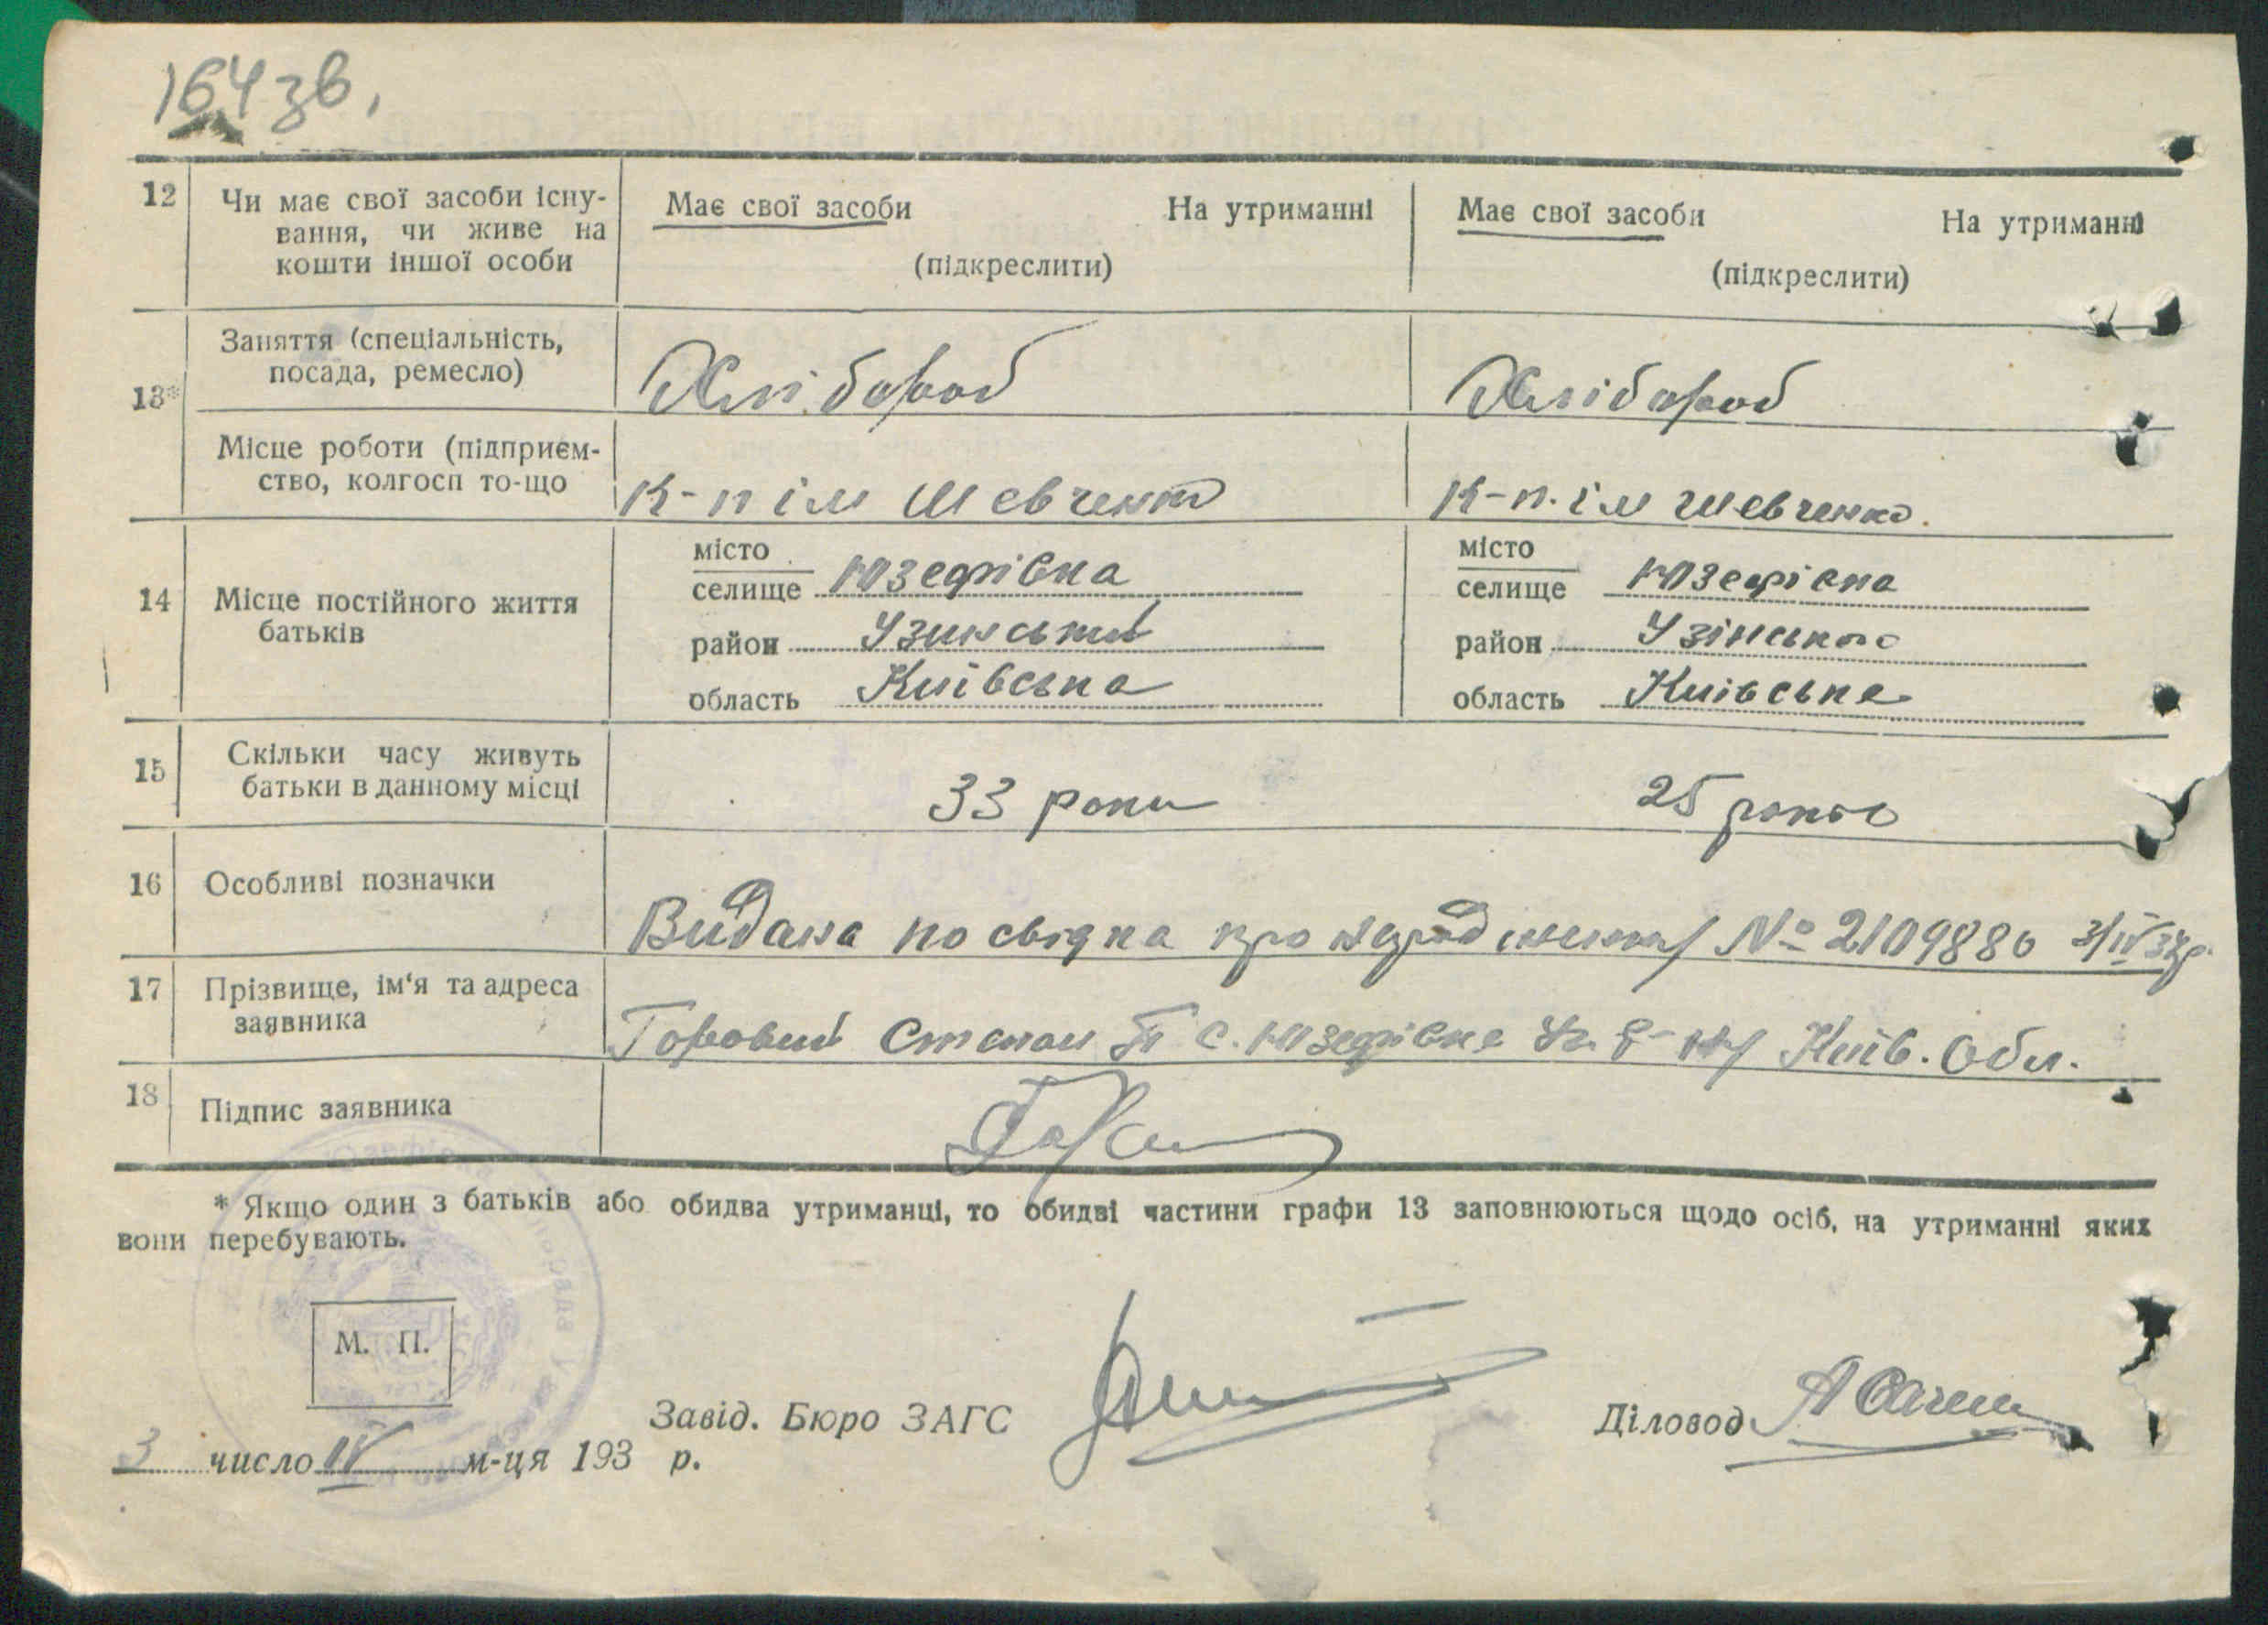 164 зв.
12 Чи має свої засоби існу-
вання, чи живе на
кошти іншої особи
Має свої засоби На утриманні
(підкреслити)
Має свої засоби На утриманні
(підкреслити)
13*
Заняття (спеціальність,
посада, ремесло)
Хлібороб
Хлібороб
Місце роботи (підприєм-
ство, колгосп то-що
К-п ім Шевченко
К-п. ім Шевченко.
14 Місце постійного життя
батьків
місто
селище Юзефівка
район Узинський
область Київська
місто
селище Юзефівка
район Узінського
область Київська
15 Скільки часу живуть
батьки в данному місці
33 роки
25 років
16 Особливі позначки
Видана посвідка про народження № 2109880 3/IV
17 Прізвище, ім'я та адреса
заявника
Горовий Степан П с. Юзефівка Уз. р-ну Київ. Обл.
18 Підпис заявника
* Якщо один з батьків або обидва утриманці, то обидві частини графи 13 заповнюються щодо осіб, на утриманні яких
вони перебувають.
М. П.
Завід. Бюро ЗАГС
Діловод
3 число IV м-ця 193 р.